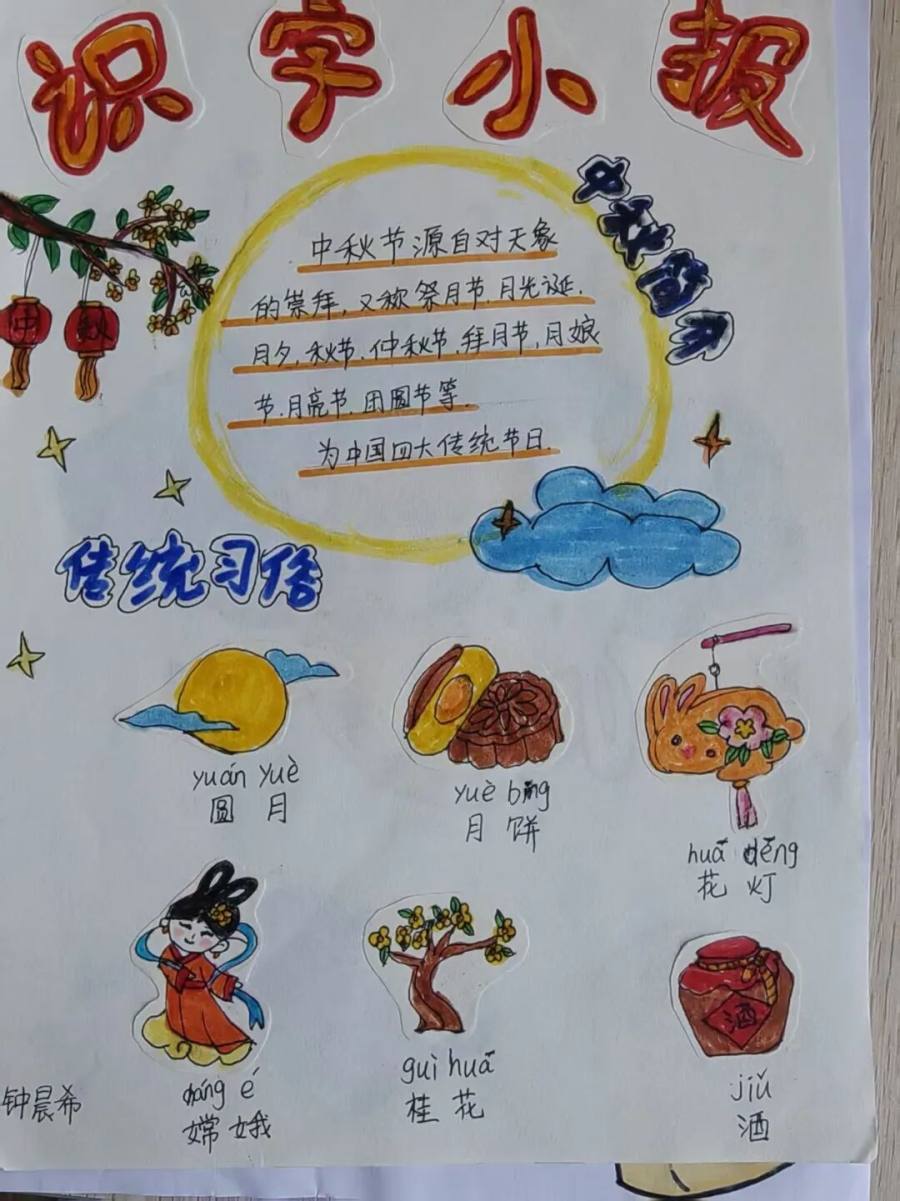 识字小报
中秋
中秋节源自对天象
的崇拜,又称祭月节.月光诞.
月夕,秋节.仲秋节.拜月节,月娘
节.月亮节.团圆节等.
为中国四大传统节日.
传统习俗
yuán yuè
圆月
yuè bǐng
月饼
huā dēng
花灯
cháng é
嫦娥
guì huā
桂花
酒
jiǔ
酒
钟晨希